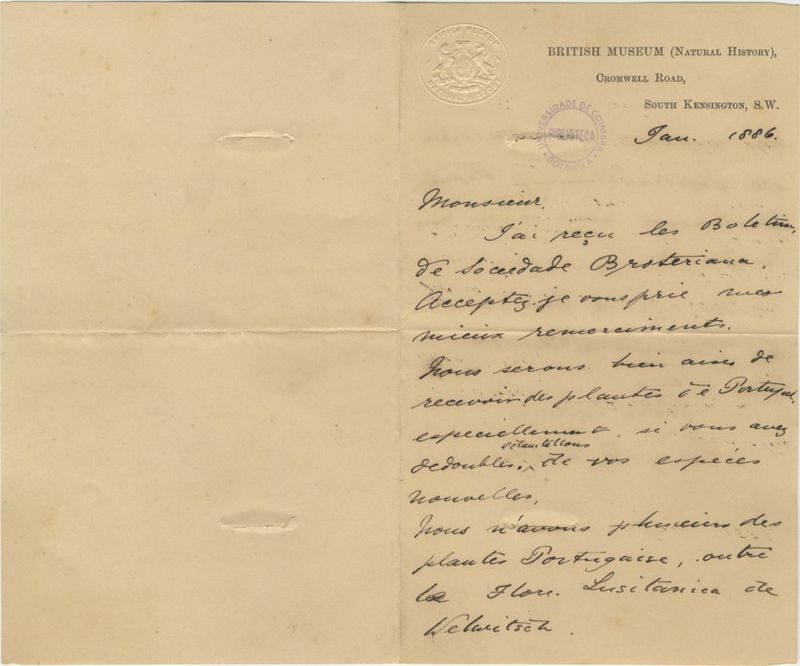 BRITISH MUSEUM
NATURAL HISTORY
BRITISH MUSEUM (NATURAL HISTORY),
CROMWELL ROAD,
SOUTH KENSINGTON, S.W.
UNIVERSIDADE DE COIMBRA
BIBLIOTECA
BOTANICA
Jan. 1886.
Monsieur,
J'ai reçu les Boletim,
de Sociedade Broteriana.
Acceptez je vous prie mes
mieux remerciments.
Nous serons bien aises de
recevoir des plantes de Portugal,
especiellement, si vous avez
echantellons
dedoubles, de vos espécés
nouvelles.
Nous n'avons plusieurs des
plantes Portugaise, outre
le Flor. Lusitanica de
Welwitsch.